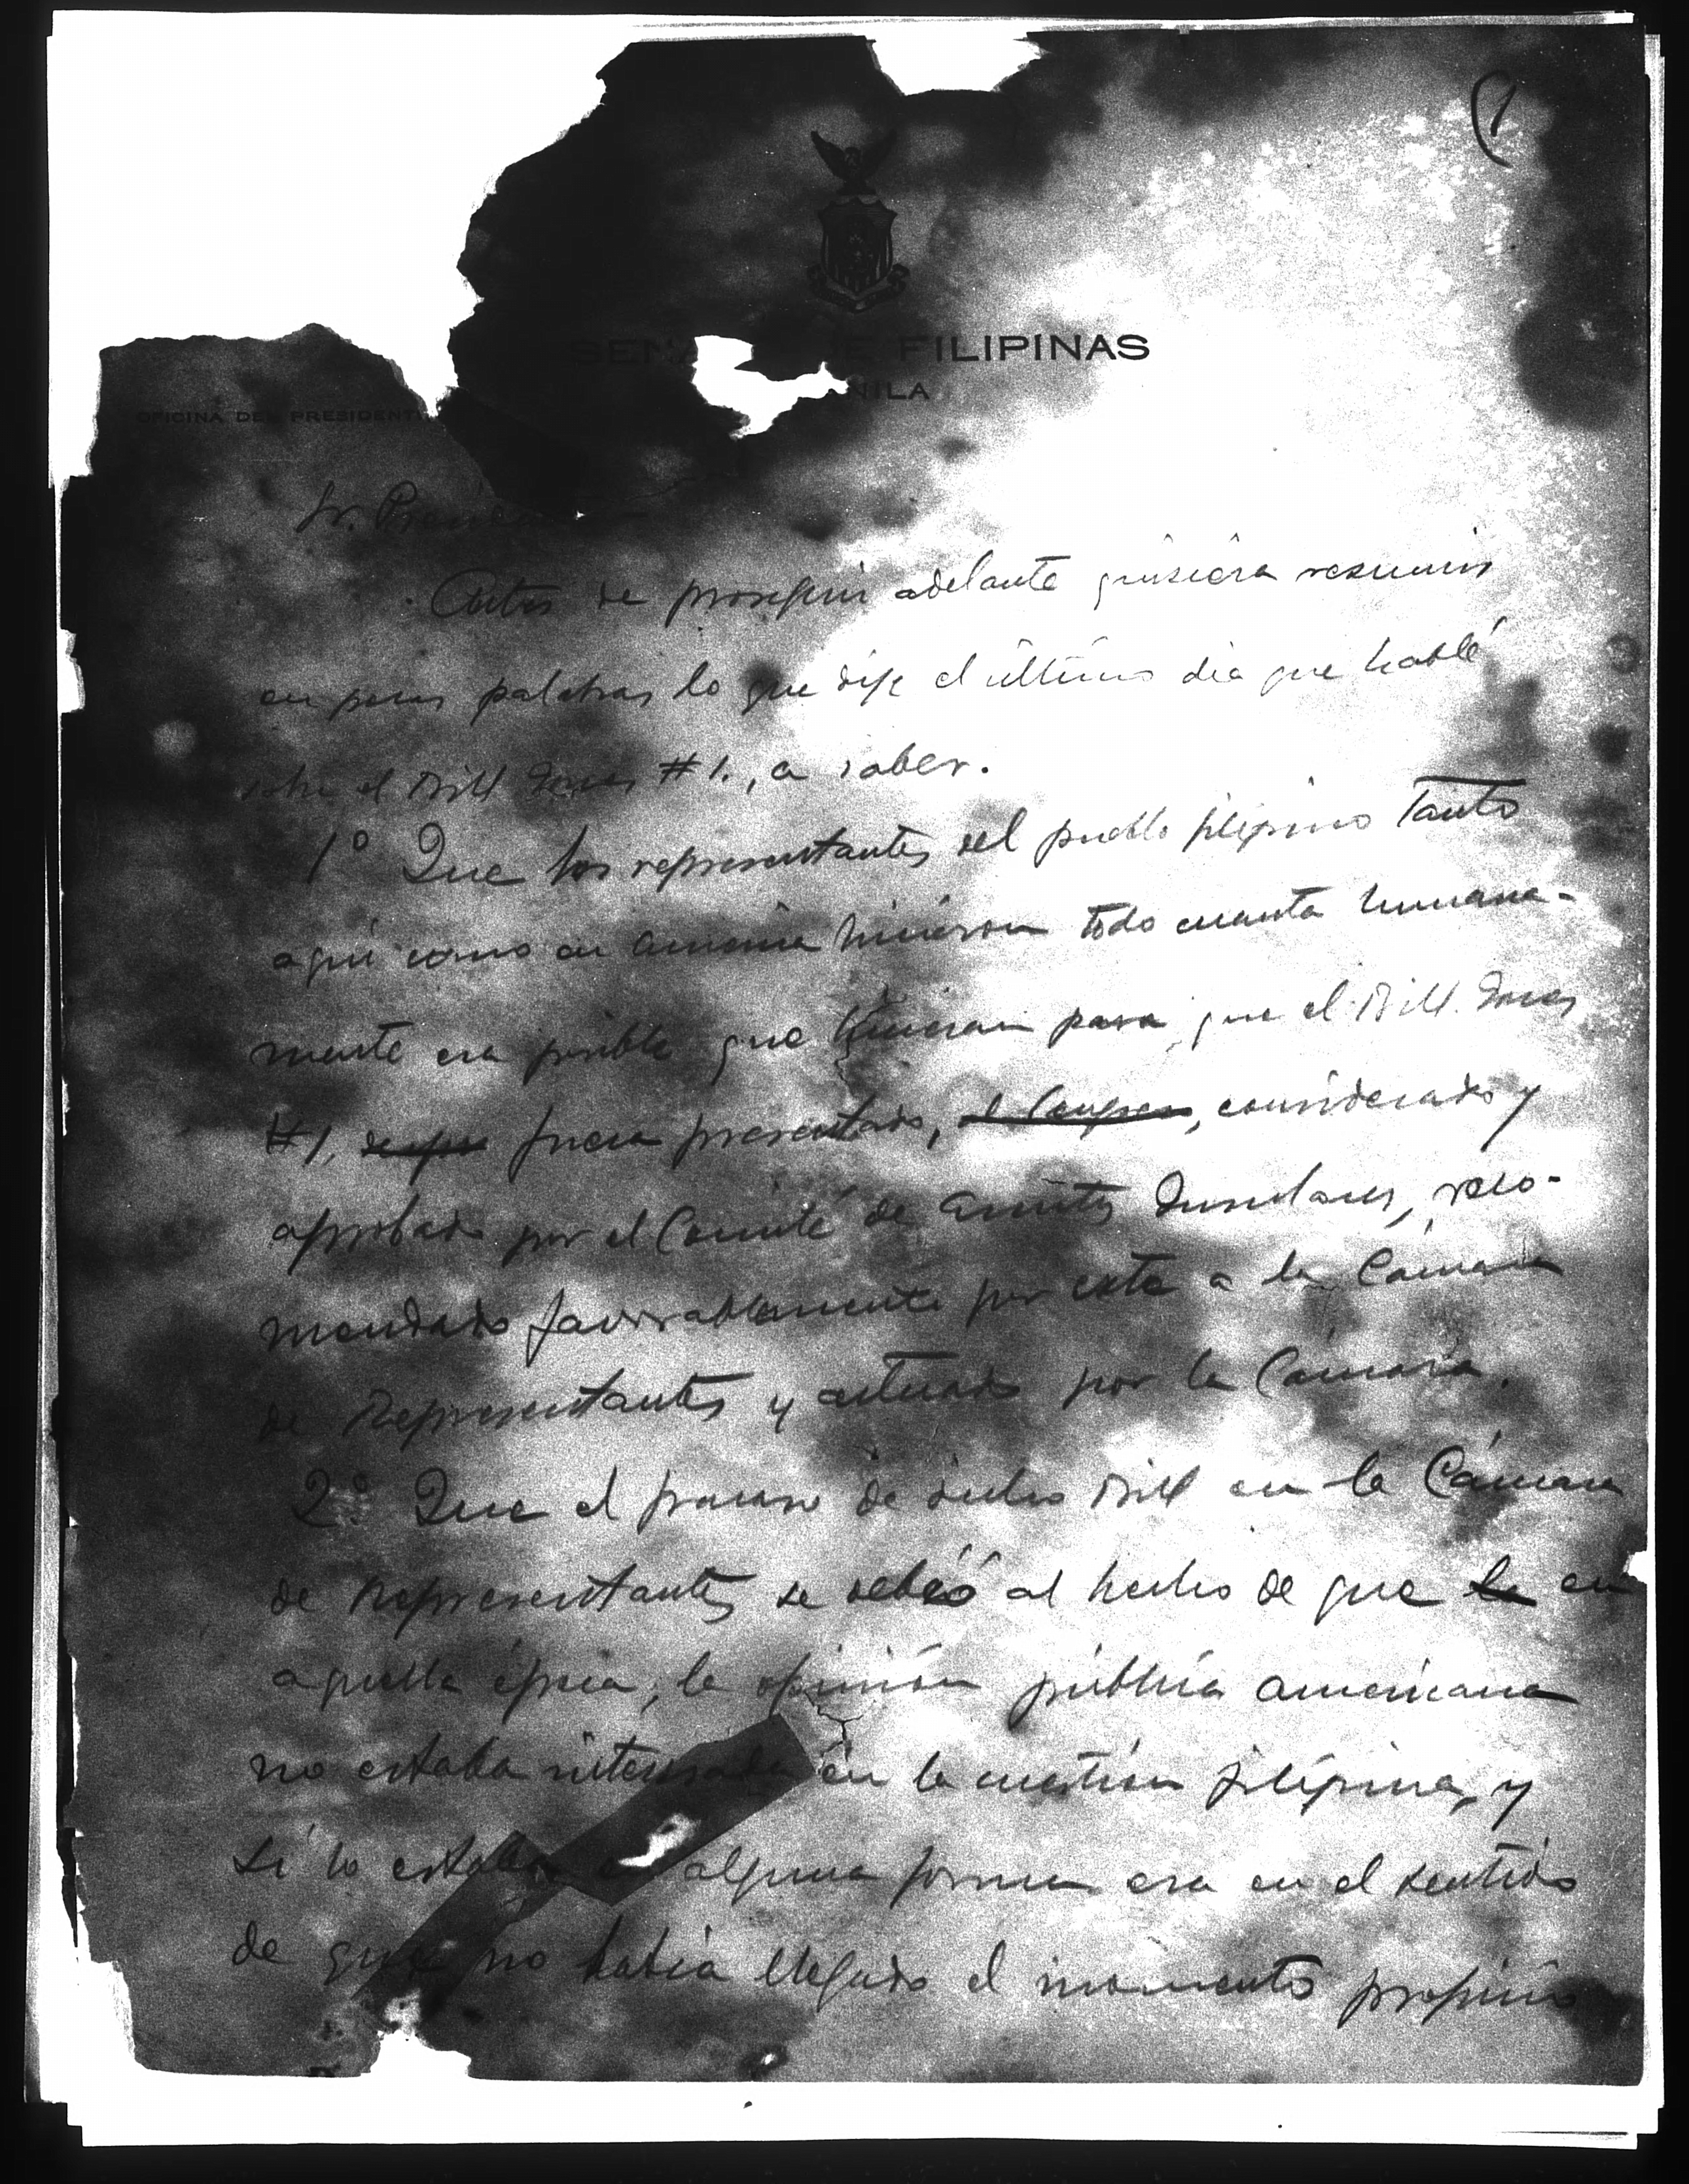 (1
SENA E FILIPINAS
NILA
OFICINA DEL PRESIDENT
Sr. Presiden
Antes de proseguir adelante quisiera resumir
en pocas palabras lo que dije el último dia que hablé
sobre el Bill Jones #1., a saber.
1º Que los representantes del pueblo filipino tanto
aqui como en America hicieron todo cuanto humana-
mente era posible que hicieran para que el Bill Jones
#1, fuera presentado, el Congreso, considerado y
aprobado por el Comité de Asuntos Insulares, reco-
mendado favorablemente por este a la Cámara
de Representantes y actuado por la Cámara.
2º. Que el fracaso de dicho Bill en la Cámara
de Representantes se debió al hecho de que la en
aquella época, la opinión pública americana
no estaba interesada en la cuestión filipina, y
si lo estaba en alguna forma era en el sentido
de que no habia llegado el momento propicio